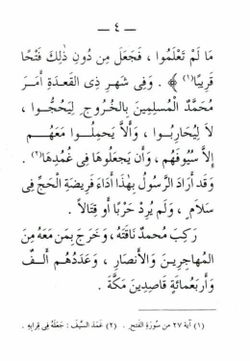 — ٤ —
مَا لَمْ تَعْلَمُوا ، فَجَعَلَ مِن دُونِ ذٰلِكَ فَتْحًا
قَرِيبًا(١) ﴾ . وَفِى شَهْرِ ذِى القَعْدَةِ أَمَرَ
مُحَمَّدٌ المُسْلِمِينَ بِالْخُرُوجِ لِيَحُجُّوا ،
لَا لِيُحَارِبُوا ، وَأَلَّا يَحمِلُوا مَعَهُم
إِلَّا سُيُوفَهُم ، وَأَن يَجعَلُوهَا فِى غُمُدِهَا(٢) .
وَقد أَرَادَ الرَّسُولُ بِهٰذَا أَدَاءَ فَرِيضَةِ الْحَجِّ فِى
سَلَامٍ ، وَلَم يُرِدْ حَرْبًا أَو قِتَالًا .
رَكِبَ مُحمدٌ نَاقَتَهُ ، وَخَرَجَ بِمَن مَعَهُ مِنَ
المُهَاجِرِينَ وَالأَنصَارِ ، وَعَدَدُهُم أَلفٌ
وَأَربَعُمِائَةٍ قَاصِدِينَ مَكَّةَ .
(١) آية ٢٧ من سُورَةِ الفَتحِ . (٢) غِمدُ السَّيفِ : جَعَلَهُ فِى قِرَابِهِ .